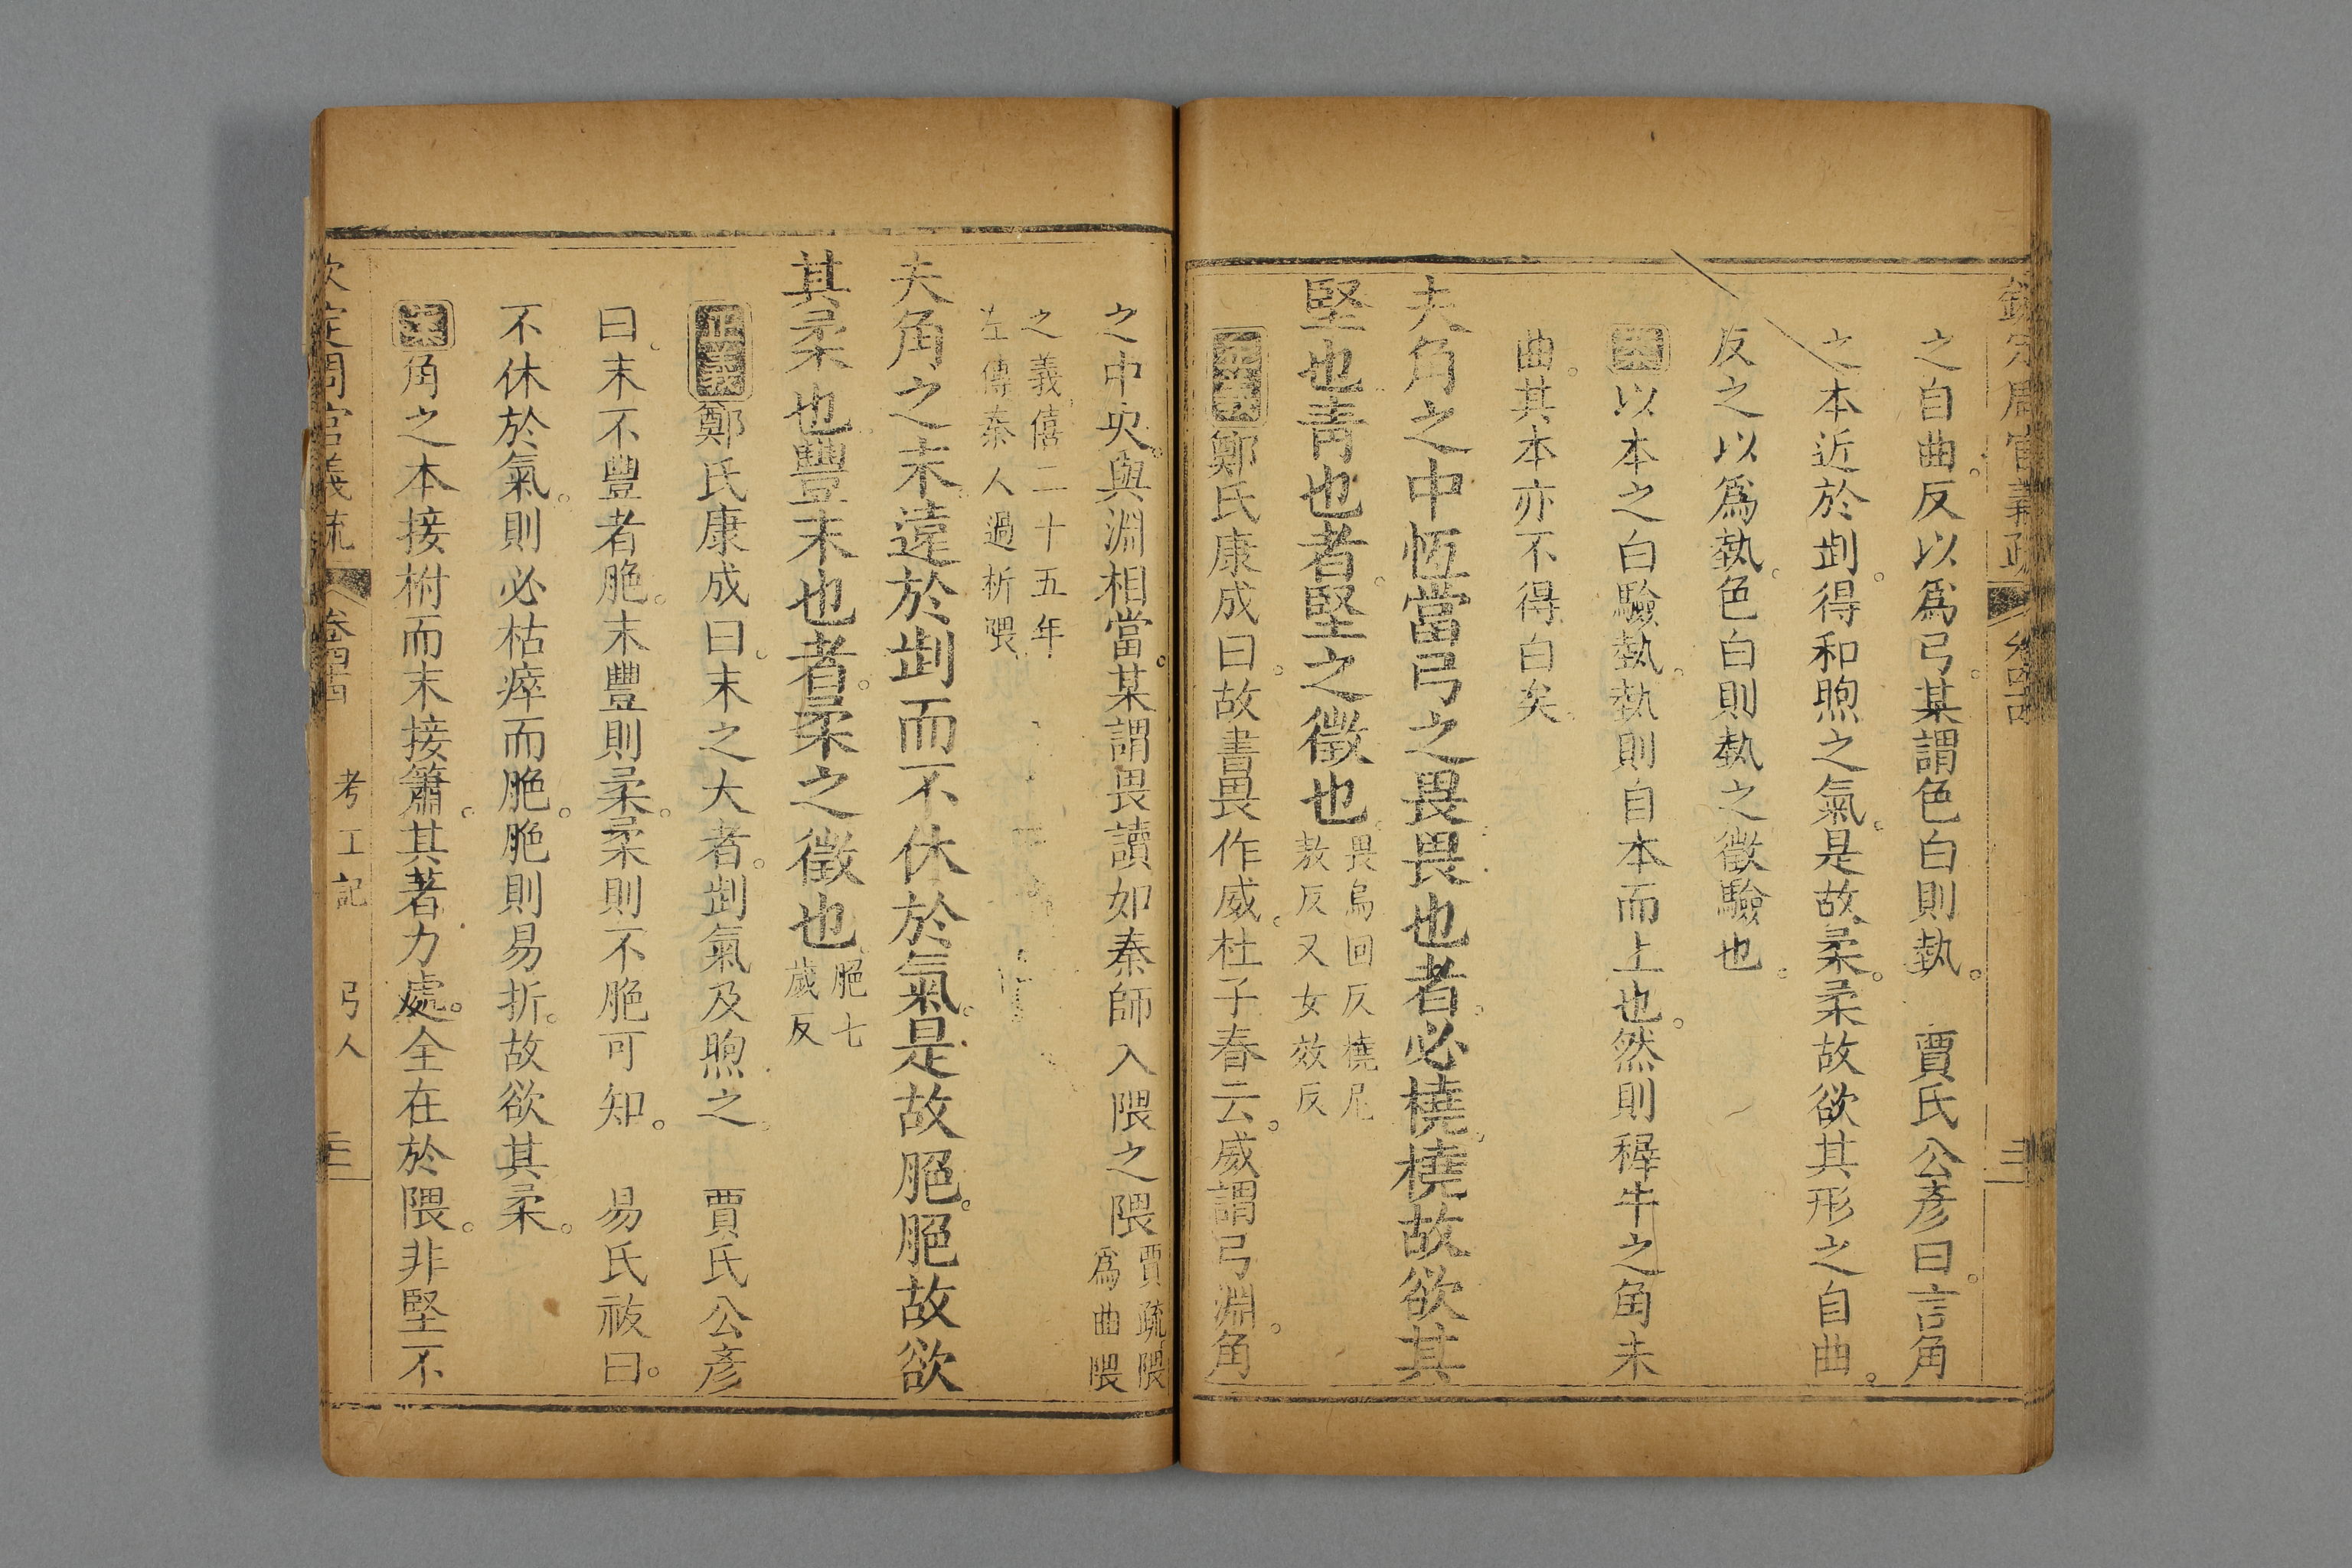 欽定周官義疏 卷四十四
之自曲。反以爲弓。某謂色白則埶。 賈氏公彥曰。言角
之本近於𠜾。得和煦之氣。是故柔。柔故欲其形之自曲。
反之以爲埶。色白則埶之徵驗也。
以本之白驗埶。埶則自本而上也。然則穉牛之角未
曲。其本亦不得白矣。
夫角之中恆當弓之畏畏也者。必橈。橈故欲其
堅也靑也者。堅之徵也。畏烏回反橈尼
教反又女效反
正義鄭氏康成曰。故書畏作威。杜子春云。威謂弓淵。角
之中央。與淵相當。某謂畏讀如秦師入隈之隈賈疏隈
爲曲隈
之義僖二十五年
左傳秦人過析隈
夫角之末。遠於𠜾而不休於氣。是故脃。脃故欲
其柔也。豐末也者。柔之徵也脃七
歲反
正義鄭氏康成曰。末之大者。𠜾氣及煦之。 賈氏公彥
曰。末不豐者脃。末豐則柔。柔則不脃可知。 易氏祓曰。
不休於氣。則必枯瘁而脃。脃則易折。故欲其柔。
角之本接柎而末接簫。其著力處。全在於隈。非堅不
欽定周官義疏 卷四十四 考工記 弓人